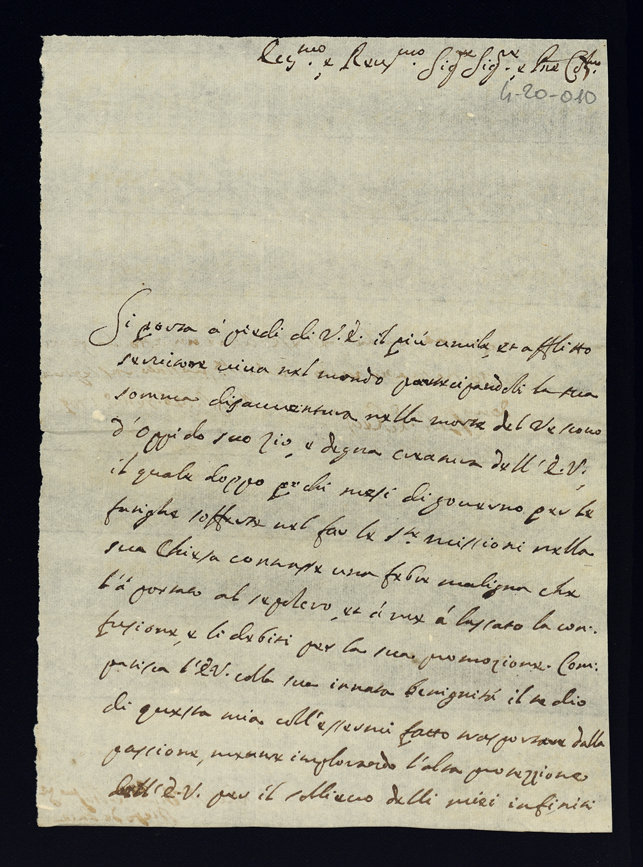 Em.mo, e Rev.mo Sig.re Sig.re, e P.ne Col.mo
4-20-010
Si porta à piedi di V.E. il più umile, et afflitto
servitore viva nel mondo partecipandoli la sua
somma disavventura nella morte del Vescovo
d'Oppido suo Zio, e degna creatura dell'E.V.,
il quale doppo pochi mesi di governo per le
fatighe sofferte nel far le S.te missioni nella
sua Chiesa contrasse una febre maligna che
l'à portato al sepolcro, et à me à lassato la con-
fusione, e li debiti per la sua promozione. Com-
patisca l'E.V. colla sua innata benignità il tedio
di questa mia coll'essermi fatto trasportare dalla
passione, mentre implorando l'alta protezzione
dell'E.V. per il sollievo delli miei infiniti